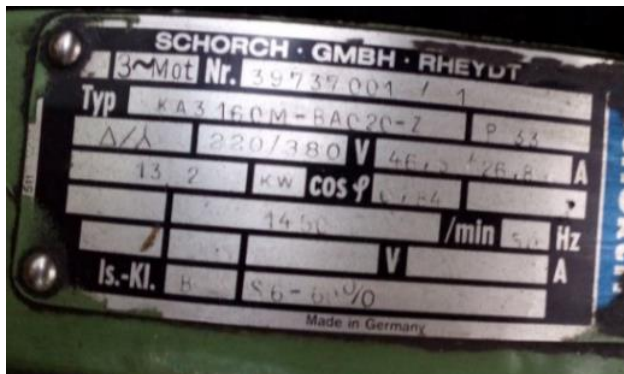 SCHORCH · GMBH · RHEYDT
3~Mot Nr. 39737001 / 1
Typ KA3 160M-BA020-Z P 33
Δ/⅄ 220/380 V A
13,2 KW cos φ 0,84
/min Hz
V A
Is.-Kl. B S6-60%
Made in Germany